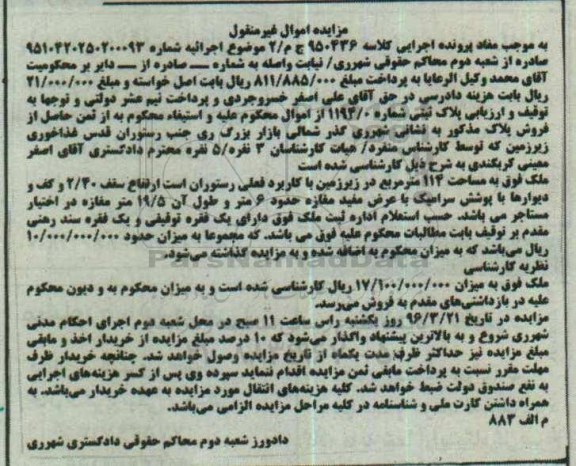 مزایده اموال غیرمنقول
به موجب مفاد پرونده اجرایی کلاسه ۹۵۰۴۳۶ ج م/۲ موضوع اجرائیه شماره ۹۵۱۰۴۲۰۲۵۰۲۰۰۰۹۳
صادره از شعبه دوم محاکم حقوقی شهرری/ نیابت واصله به شماره ـــ صادره از ـــ دایر بر محکومیت
آقای محمد وکیل الرعایا به پرداخت مبلغ ۸۱۱/۸۸۵/۰۰۰ ریال بابت اصل خواسته و مبلغ ۲۱/۰۰۰/۰۰۰
ریال بابت هزینه دادرسی در حق آقای علی اصغر خسروجردی و پرداخت نیم عشر دولتی و توجها به
توقیف و ارزیابی پلاک ثبتی شماره ۱۱۹۴/۰ از اموال محکوم علیه و استیفاء محکوم به از ثمن حاصل از
فروش پلاک مذکور به نشانی شهرری گذر شمالی بازار بزرگ ری جنب رستوران قدس غذاخوری
زیرزمین که توسط کارشناس منفرد/ هیات کارشناسان ۳ نفره/۵ نفره محترم دادگستری آقای اصغر
معینی کربکندی به شرح ذیل کارشناسی شده است
ملک فوق به مساحت ۱۱۴ مترمربع در زیرزمین با کاربرد فعلی رستوران است ارتفاع سقف ۲/۴۰ و کف و
دیوارها با پوشش سرامیک با عرض مفید مغازه حدود ۶ متر و طول آن ۱۹/۵ متر مغازه در اختیار
مستاجر می باشد. حسب استعلام اداره ثبت ملک فوق دارای یک فقره توقیفی و یک فقره سند رهنی
مقدم بر توقیف بابت مطالبات محکوم علیه فوق می باشد. که مجموعا به میزان حدود ۱۰/۰۰۰/۰۰۰/۰۰۰
ریال می‌باشد که به میزان محکوم به اضافه شده و به مزایده گذاشته می‌شود.
نظریه کارشناسی
ملک فوق به میزان ۱۷/۱۰۰/۰۰۰/۰۰۰ ریال کارشناسی شده است و به میزان محکوم به و دیون محکوم
علیه در بازداشتی‌های مقدم به فروش می‌رسد.
مزایده در تاریخ ۹۶/۳/۲۱ روز یکشنبه راس ساعت ۱۱ صبح در محل شعبه دوم اجرای احکام مدنی
شهرری شروع و به بالاترین پیشنهاد واگذار می‌شود که ۱۰ درصد مبلغ مزایده از خریدار اخذ و مابقی
مبلغ مزایده نیز حداکثر ظرف مدت یکماه از تاریخ مزایده وصول خواهد شد. چنانچه خریدار ظرف
مهلت مقرر نسبت به پرداخت مابقی ثمن مزایده اقدام ننماید سپرده وی پس از کسر هزینه‌های اجرایی
به نفع صندوق دولت ضبط خواهد شد. کلیه هزینه‌های انتقال مورد مزایده به عهده خریدار می‌باشد. به
همراه داشتن کارت ملی و شناسنامه در کلیه مراحل مزایده الزامی می‌باشد.
م الف ۸۸۳
دادورز شعبه دوم محاکم حقوقی دادگستری شهرری
ParsNamadData